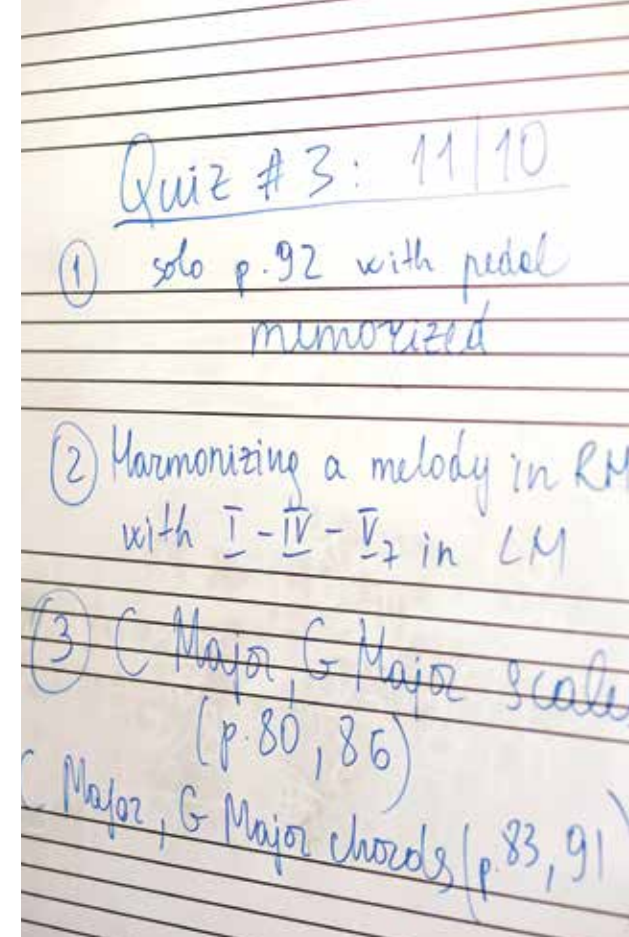 Quiz # 3: 11/10
① solo p.92 with pedal
memorized
② Harmonizing a melody in RH
with I - IV - V7 in LH
③ C Major, G Major scales
(p.80, 86)
C Major, G Major chords (p.83, 91)